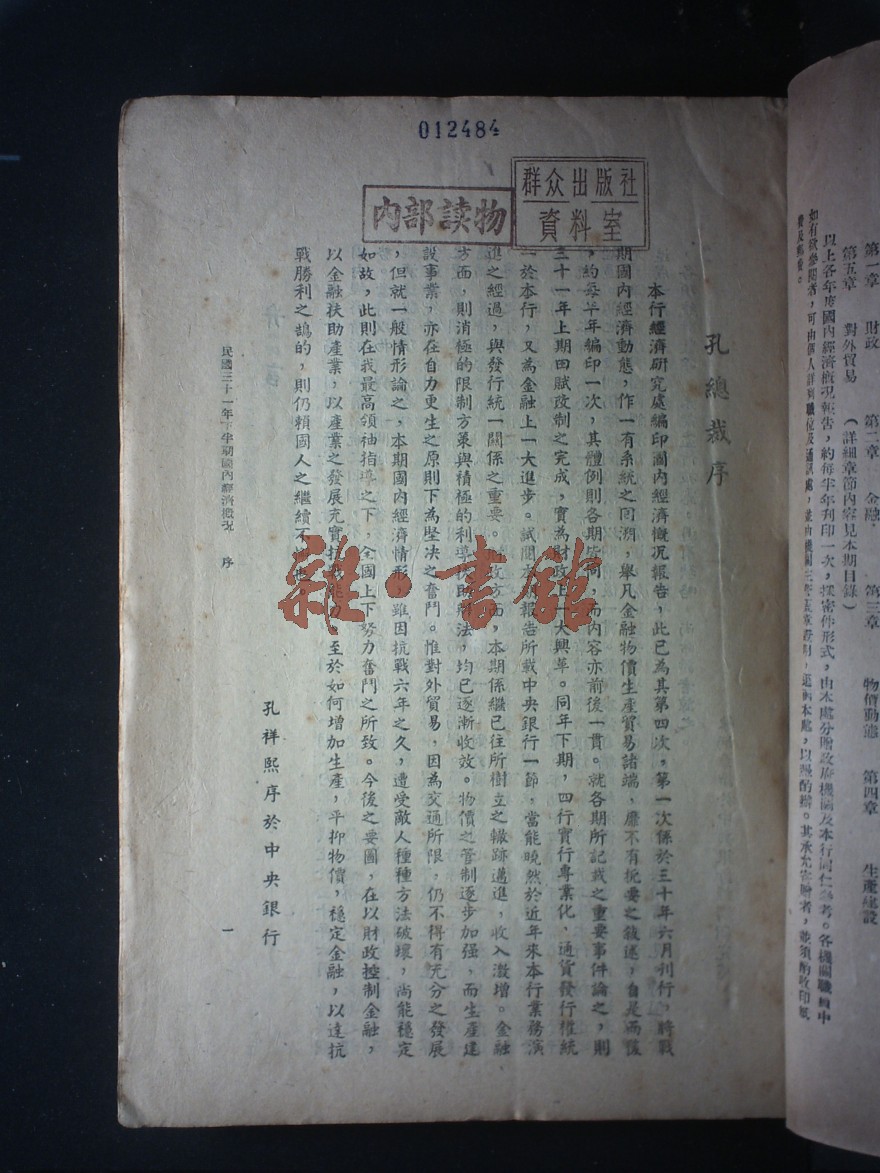 012484
群众出版社
資料室
内部读物
孔總裁序
本行經濟研究處編印國內經濟概况報告，此已為其第四次，第一次係於三十年六月刊行，將戰
期國內經濟動態，作一有系統之回溯，舉凡金融物價生產貿易諸端，靡不有扼要之敘述，自是而後
，約每半年編印一次，其體例則各期皆同，而內容亦前後一貫。就各期所記載之重要事件論之，則
三十一年上期田賦改制之完成，實為財政上一大興革。同年下期，四行實行專業化，通貨發行權統
一於本行，又為金融上一大進步。試閱本期報告所載中央銀行一節，當能曉然於近年來本行業務演
進之經過，與發行統一關係之重要。財政方面，本期係繼已往所樹立之轍跡邁進，收入激增。金融
方面，則消極的限制方策與積極的利導扶助辦法，均已逐漸收效。物價之管制逐步加强，而生產建
設事業，亦在自力更生之原則下為堅決之奮鬥。惟對外貿易，因為交通所限，仍不得有充分之發展
，但就一般情形論之，本期國內經濟情形，雖因抗戰六年之久，遭受敵人種種方法破壞，尚能穩定
如故，此則在我最高領袖指導之下，全國上下努力奮鬥之所致。今後之要圖，在以財政控制金融，
以金融扶助產業，以產業之發展充實抗戰能力。至於如何增加生產，平抑物價，穩定金融，以達抗
戰勝利之鵠的，則仍賴國人之繼續不懈也。
孔祥熙序於中央銀行
民國三十一年下半期國內經濟概况 序 一
雜·書館
第一章 財政 第二章 金融 第三章 物價動態 第四章 生產建設
第五章 對外貿易 （詳細章節內容見本期目錄）
以上各年度國內經濟概况報告，約每半年刊印一次，採密件形式，由本處分贈政府機關及本行同仁參考。各機關職員中